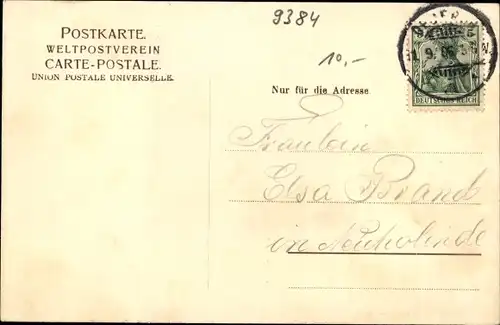 9384
POSTKARTE.
WELTPOSTVEREIN
CARTE-POSTALE.
UNION POSTALE UNIVERSELLE.
10,-
Nur für die Adresse
DEUTSCHES REICH
Fräulein
Elsa Brand
in